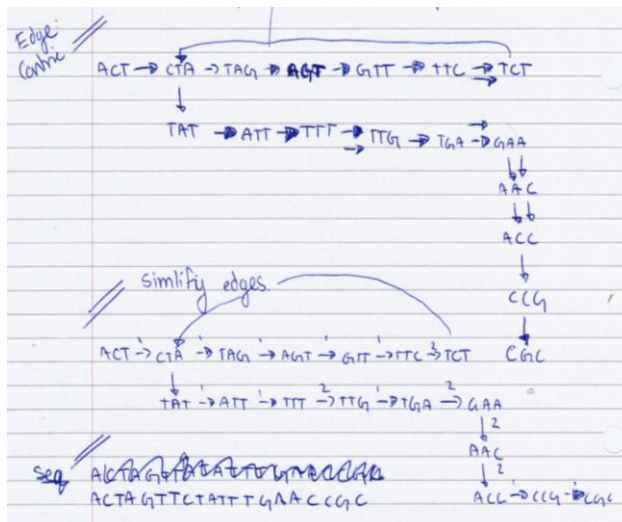 Edge
Centric
ACT → CTA → TAG → AGT → GTT → TTC → TCT
TAT → ATT → TTT → TTG → TGA → GAA
AAC
ACC
CCG
CGC
Simlify edges.
ACT 1→ CTA 1→ TAG 1→ AGT 1→ GTT 1→ TTC 2→ TCT
TAT 1→ ATT 1→ TTT 2→ TTG 1→ TGA 2→ GAA
2
AAC
2
Seq
ACTAGTTCTATTTGAACCGC
ACC 1→ CCG 1→ CGC